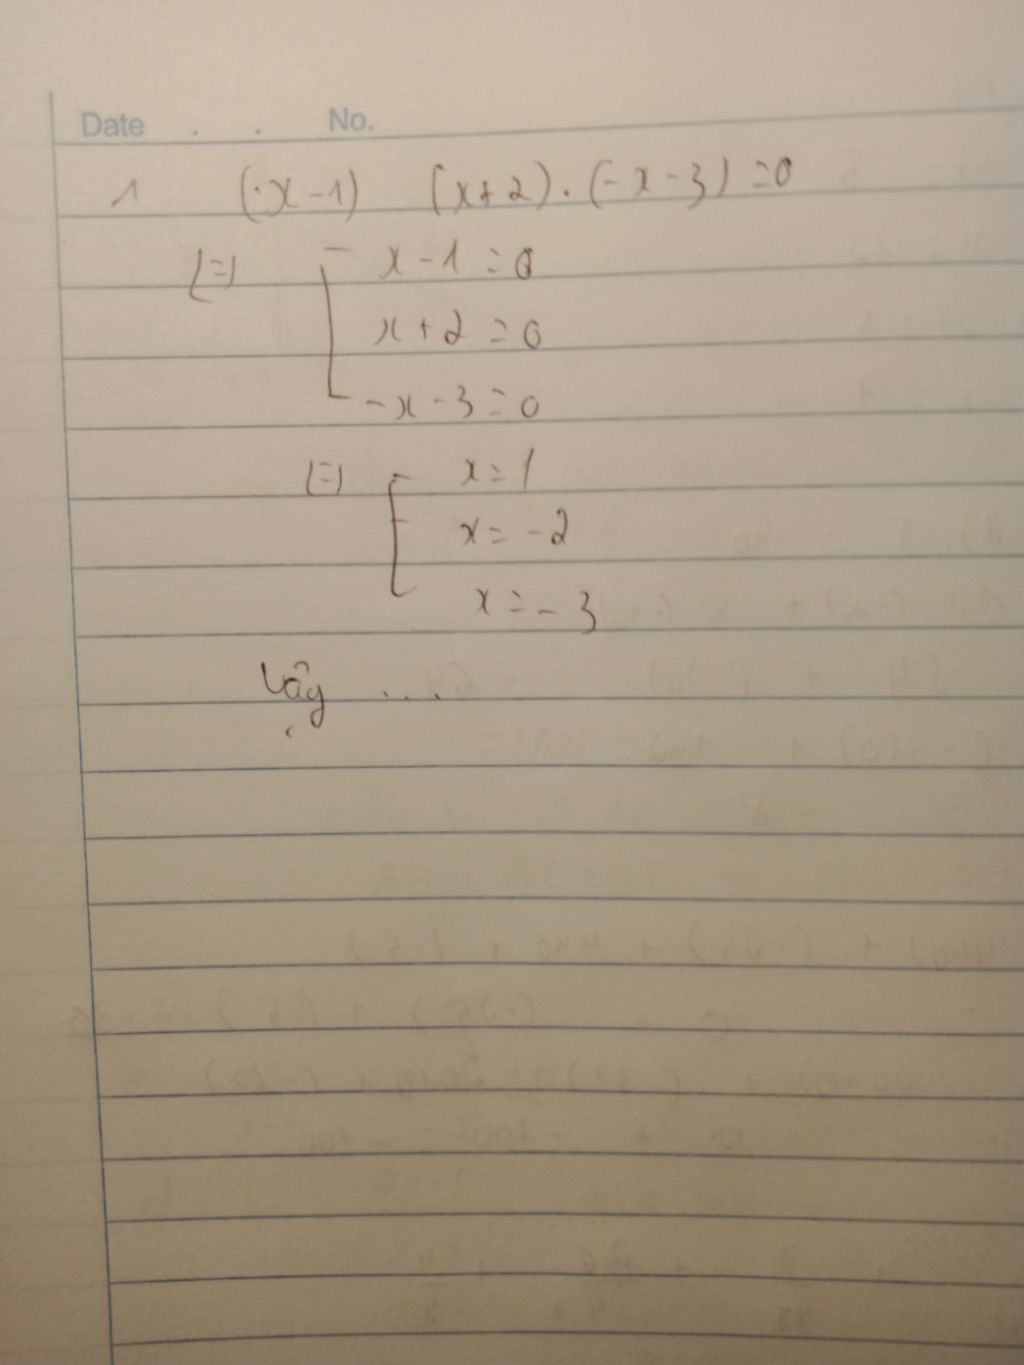 Date . . No.
1 (x-1) (x+2).(-x-3)=0
(=) [ x-1=0
x+2=0
-x-3=0
(=) [ x=1
x=-2
x=-3
Vậy ...